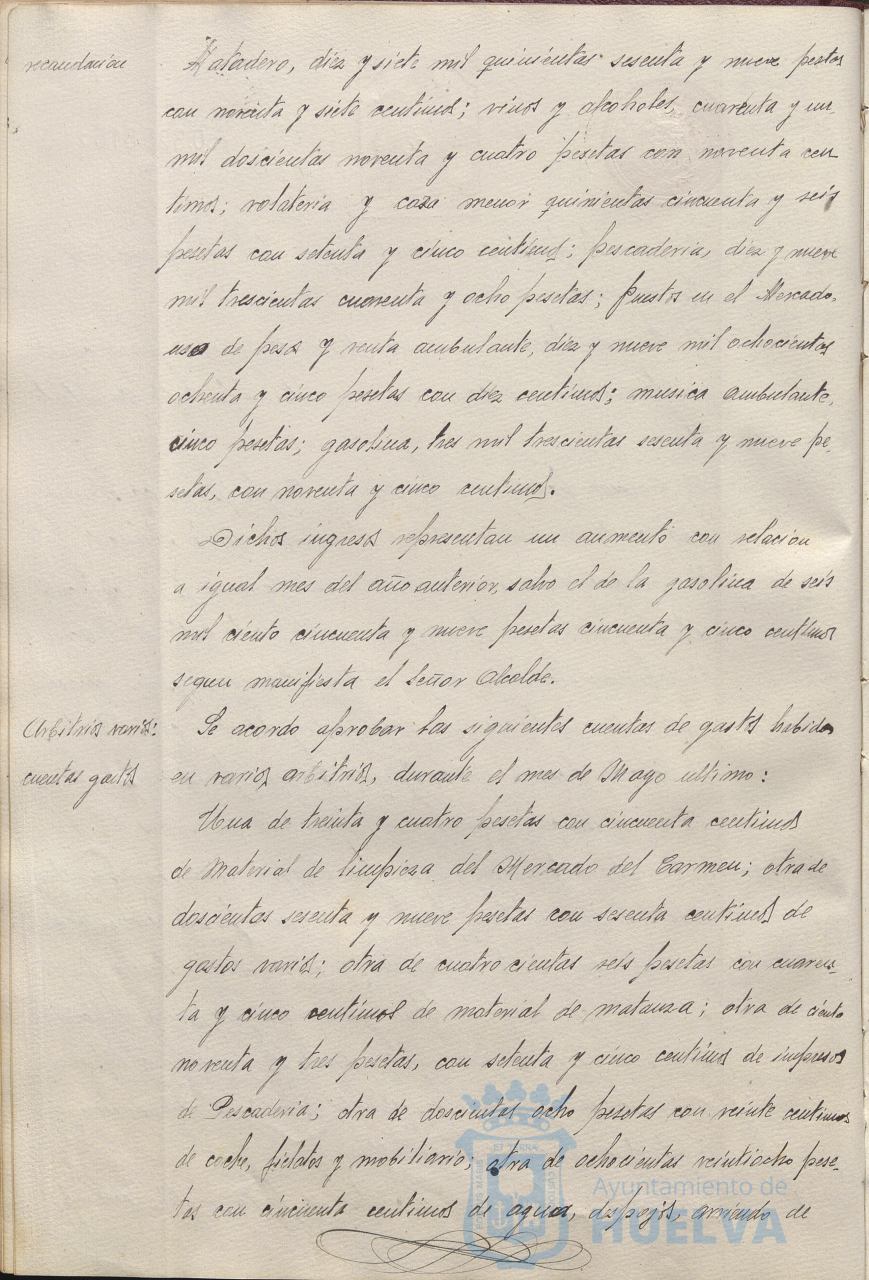 recaudacion
Matadero, diez y siete mil quinientas sesenta y nueve pesetas
con noventa y siete centimos; vinos y alcoholes, cuarenta y un
mil doscientas noventa y cuatro pesetas con noventa cen
timos; volateria y caza menor quinientas cincuenta y seis
pesetas con setenta y cinco centimos; pescaderia, diez y nueve
mil trescientas cuarenta y ocho pesetas; Puestos en el Mercado,
uso de pesos y venta ambulante, diez y nueve mil ochocientas
ochenta y cinco pesetas con diez centimos; musica ambulante,
cinco pesetas; gasolina, tres mil trescientas sesenta y nueve pe-
setas, con noventa y cinco centimos.
Dichos ingresos representan un aumento con relacion
a igual mes del año anterior, salvo el de la gasolina de seis
mil ciento cincuenta y nueve pesetas cincuenta y cinco centimos
segun manifiesta el Señor Alcalde.
Arbitrios varios:
cuentas gastos
Se acordo aprobar las siguientes cuentas de gastos habidos
en varios arbitrios, durante el mes de Mayo ultimo:
Una de treinta y cuatro pesetas con cincuenta centimos
de Material de limpieza del Mercado del Carmen; otra de
doscientas sesenta y nueve pesetas con sesenta centimos de
gastos varios; otra de cuatrocientas seis pesetas con cuaren-
ta y cinco centimos de material de matanza; otra de ciento
noventa y tres pesetas, con setenta y cinco centimos de impresos
de Pescaderia; otra de doscientas ocho pesetas con veinte centimos
de coche, fielatos y mobiliario; otra de ochocientas veintiocho pese-
tas con cincuenta centimos de agua, despojos, arriendo de
Ayuntamiento de
HUELVA